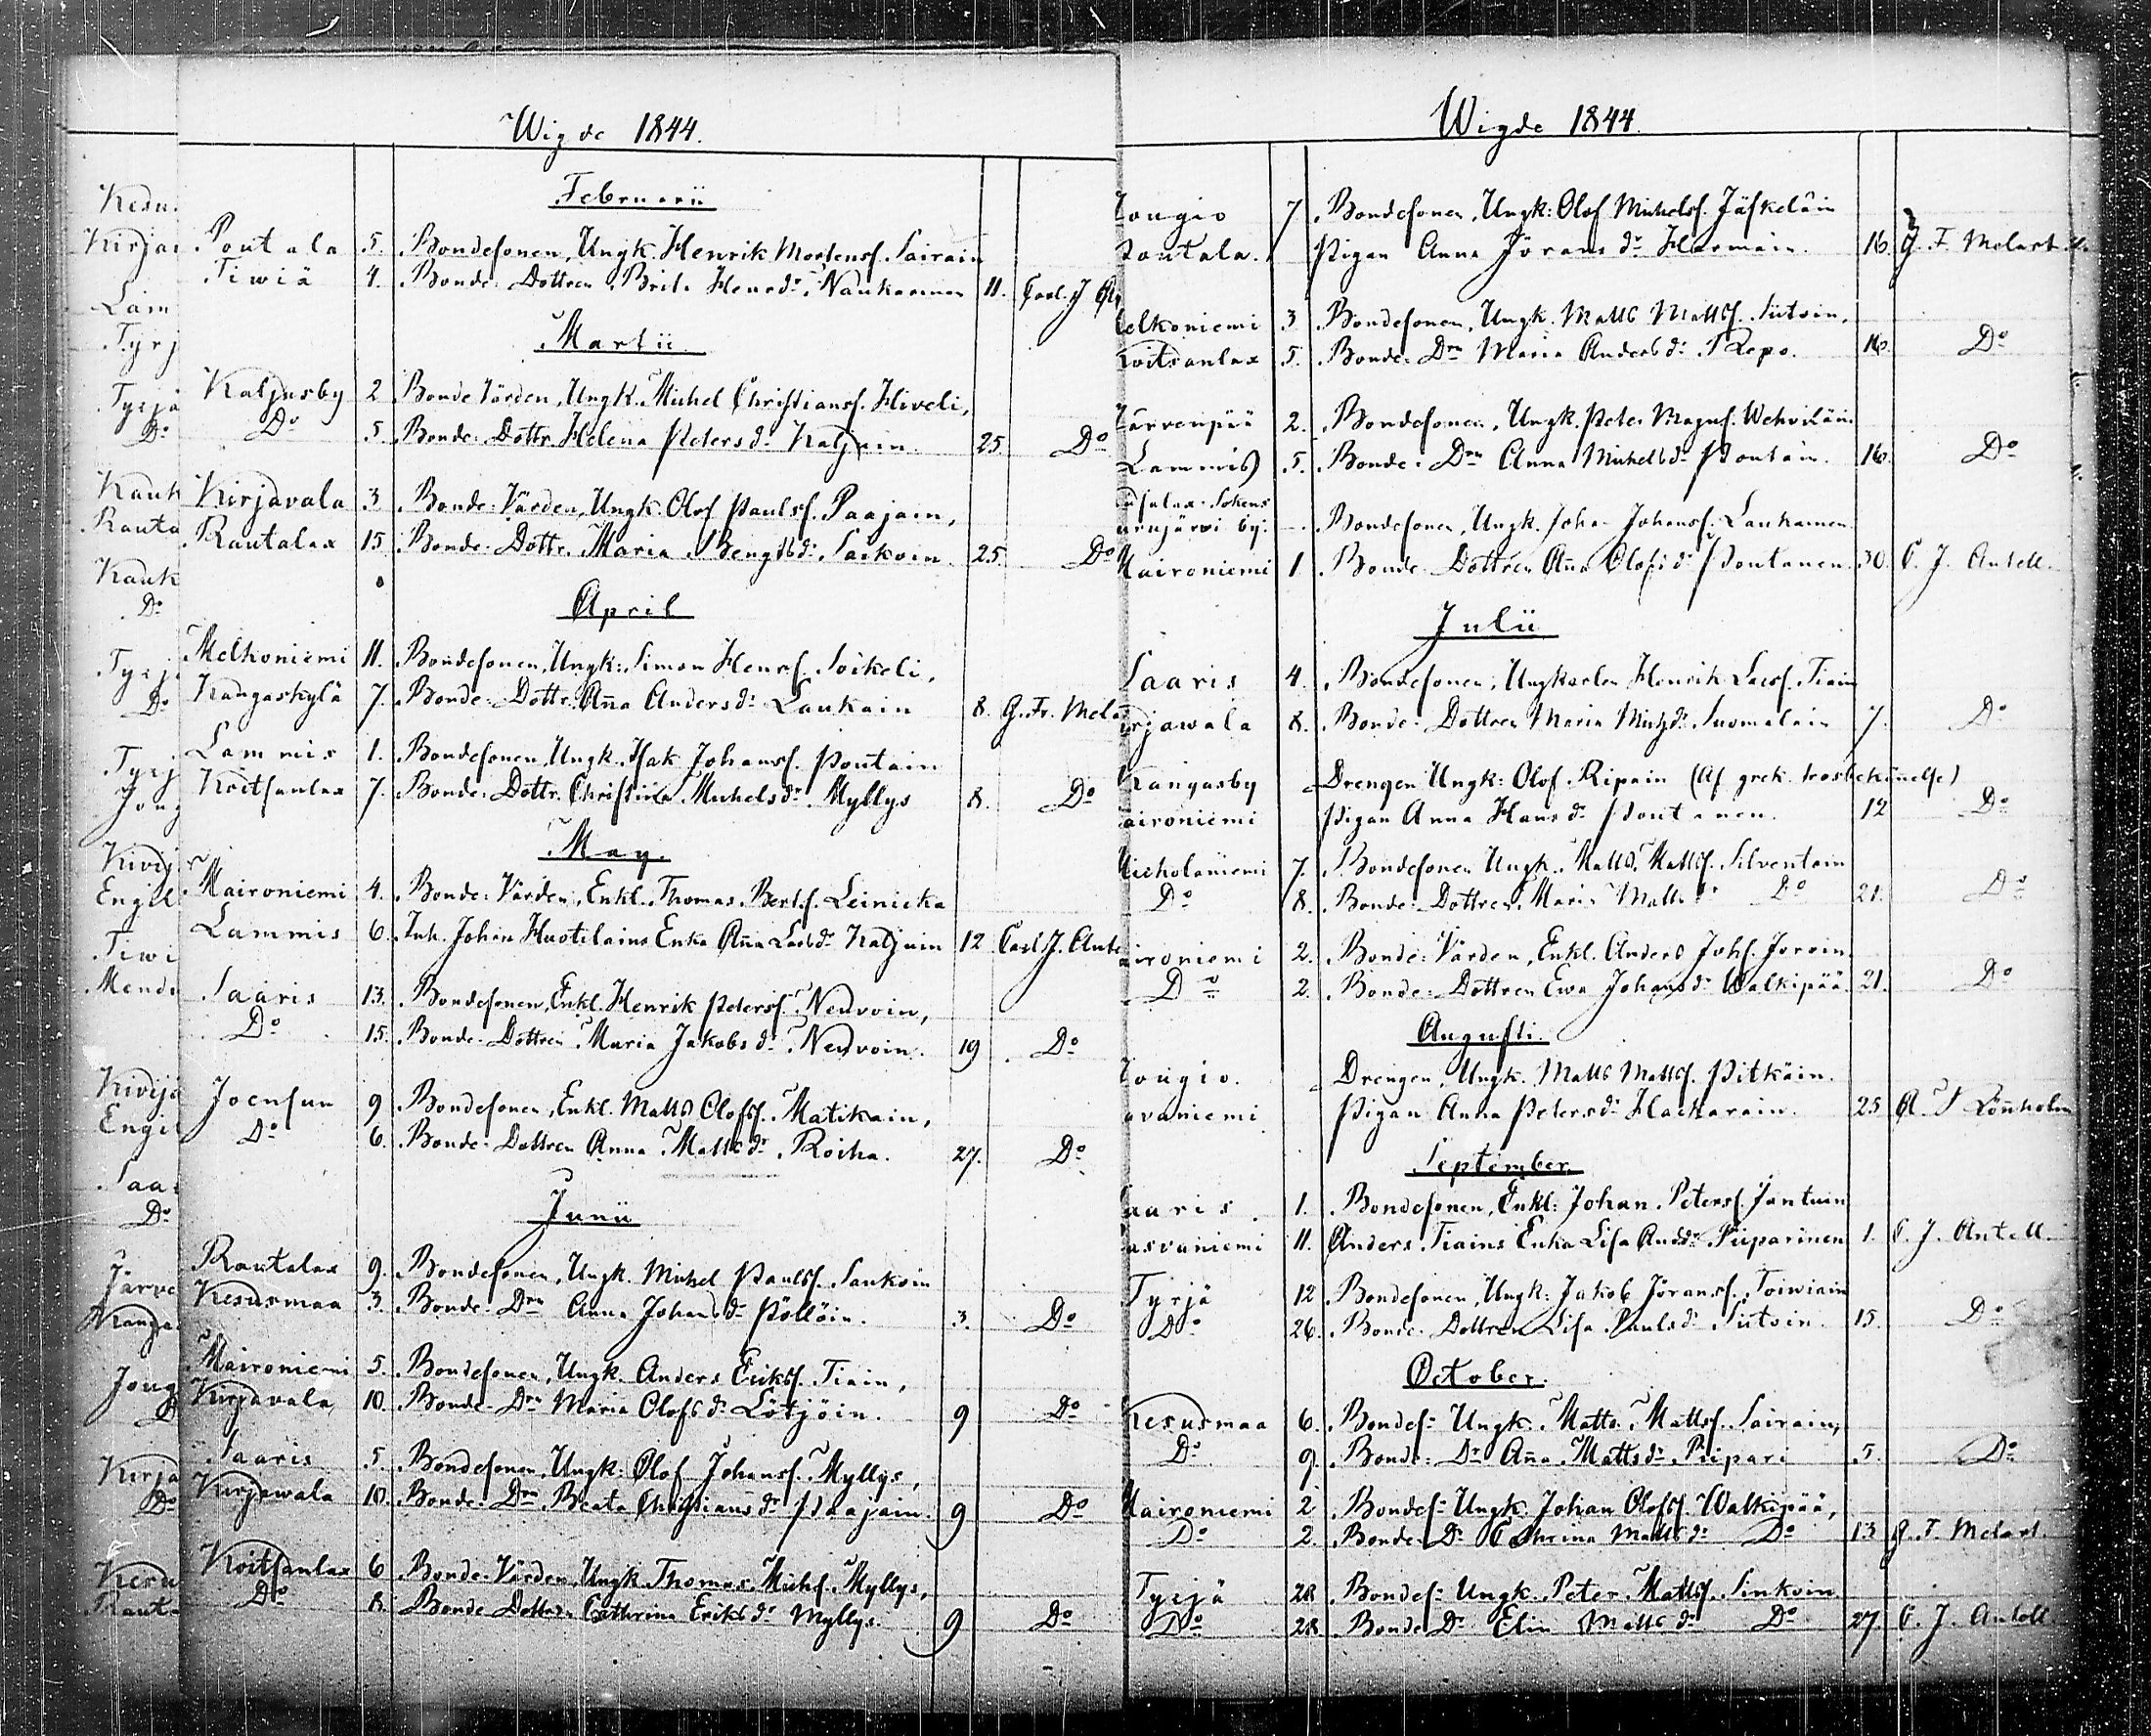 Wigde 1844.
Februarii
Poutala 5. Bondesonen, Ungk. Henrik Mortensf. Sairain
Tiwiä 4. Bonde Dottren Brita Henrsdr. Naukarinen 11. Carl. J
Martii.
Kaljusby 2 Bonde Värden, Ungk. Michel Christiansf. Hiveli,
Do 5 Bonde Dottr. Helena Petersdr. Kaljuin 25 Do
Kirjavala 3 Bonde Värden, Ungk. Olof Paulsf. Paajain,
Rautalax 15 Bonde Dottr. Maria Bengtsdr. Saikoin 25. Do
April
Melkoniemi 11. Bondesonen, Ungk: Simon Henrsf. Soikeli,
Kangaskylä 7. Bonde Dottr. Aña Andersdr. Laukain 8. G. Fr. Mela
Lammis 1. Bondesonen, Ungk. Isak Johansf. Poutain
Koitsanlax 7. Bonde Dottr. Christina Michelsdr. Myllys 8. Do
May.
Maironiemi 4. Bonde Värden, Enkl. Thomas Bertsf. Leinicka
Lammis 6. Inh. Johan Huotilains Enka Aña Larsdr. Kaljuin 12 Carl J. Ante
Saaris 13. Bondesonen, Enkl. Henrik Petersf. Neuvoin,
Do 15. Bonde Dottren Maria Jakobsdr. Neuvoin. 19 Do
Joensuu 9 Bondesonen, Enkl. Matts Olofsf. Matikain,
Do 6. Bonde Dottren Anna Mattsdr. Roiha. 27. Do
Junii
Rautalax 9. Bondesonen, Ungk. Michel Paulsf. Saukoin
Kesusmaa 3. Bonde Drn Anna Johansdr. Pöllöin. 3. Do
Maironiemi 5. Bondesonen, Ungk. Anders Eriksf. Tiain,
Kirjavala, 10. Bonde Drn Maria Olofsdr. Lötjöin. 9 Do
Saaris 5 Bondesonen, Ungk: Olof Johansf. Myllys,
Kirjawala 10. Bonde Drn Beata Christiansdr. Paajain. 9 Do
Koitsanlax 6 Bonde Värden, Ungk. Thomas Michf. Myllys,
Do 8. Bonde Dottren Cathrina Eriksdr. Myllys. 9 Do
Wigde 1844.
ougio 7. Bondesonen, Ungk: Olof Michelsf. Jäskeläin
outala. Pigan Anna Jöransdr. Harmain. 16. G. F. Melart
elkoniemi 3 Bondesonen, Ungk. Matts Mattsf. Siitoin,
oitsanlax 5. Bonde Drn Maria Andersdr. Repo. 16. Do
ärvenpää 2. Bondesonen, Ungk. Peter Magnf. Wehviläin
Lammis 5. Bonde Drn Anna Michelsdr. Poutain. 16. Do
Sokens
by: Bondesonen, Ungk. Johan Johansf. Laukainen
Maironiemi 1. Bonde Dottren Aña Olofsdr. Poutanen. 30. C. J. Antell.
Julii
Saaris 4. Bondesonen, Ungkarlen Henrik Larsf. Tiain
irjawala 8. Bonde Dottren Maria Michsdr. Suomalain 7. Do
Kangasby Drengen Ungk: Olof Ripain (Af grek. trosbekänelse)
aironiemi Pigan Anna Hansdr. Poutanen. 12 Do
7. Bondesonen Ungk. Matts Mattsf. Silventoin
Do 8. Bonde Dottren Maria Mattsdr. Do 21. Do
ironiemi 2. Bonde Värden, Enkl. Anders Johf. Joroin
Do 2. Bonde Dottren Ewa Johansdr. Walkipää. 21. Do
Augusti.
ougio. Drengen, Ungk. Matts Mattsf. Pitkäin.
ovaniemi Pigan Anna Petersdr. Hackarain. 25 A. Löñholm
September
aaris 1. Bondesonen, Enkl: Johan Petersf. Jantuin
asvaniemi 11. Anders Tiains Enka Lisa Andsdr. Piiparinen 1. C. J. Antell.
Tyrjä 12 Bondesonen, Ungk: Jakob Jöransf. Toiwiain
Do 26. Bonde Dottren Lisa Paulsdr. Siitoin. 15. Do
October.
Kesusmaa 6. Bondes: Ungk. Matts Mattsf. Sairain,
Do 9. Bonde Dr. Aña Mattsdr. Piipari 5. Do
Maironiemi 2 Bondes: Ungk. Johan Olofsf. Walkipää,
Do 2. Bonde Dr. Cathrina Mattsdr. Do 13 G. F. Melart.
Tyrjä 28 Bondes: Ungk. Peter Mattsf. Sinkoin
Do 28 Bonde Dr. Elin Mattsdr. Do 27. C. J. Antell